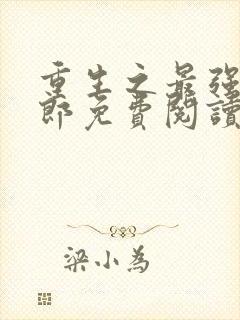 重生之最強
郎免費閱讀
梁小為